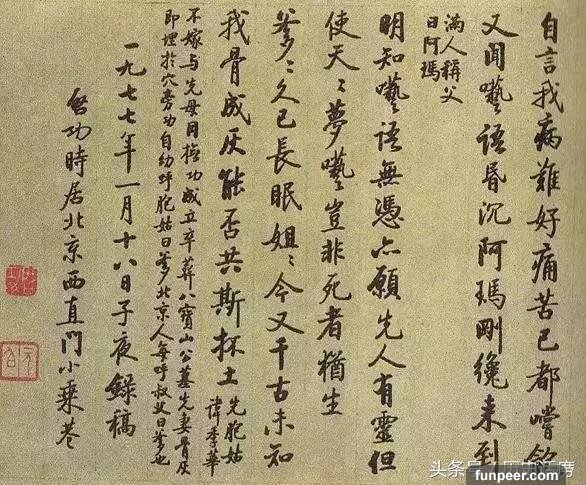 自言我病難好痛苦已都嚐飽
又聞囈語昏沉阿瑪剛纔來到
滿人稱父
曰阿瑪
明知囈語無憑亦願先人有靈但
使天〻夢囈豈非死者猶生
爹〻久已長眠姐〻今又千古未知
我骨成灰能否共斯抔土
先胞姑
諱季華
不嫁與先母同撫功成立卒葬八寶山公墓先妻骨灰
即埋於穴旁功自幼呼胞姑曰爹北京人每呼叔父曰爹也
一九七七年一月十八日子夜錄稿
啓功時居北京西直門小乘巷
头条
funpeer.com